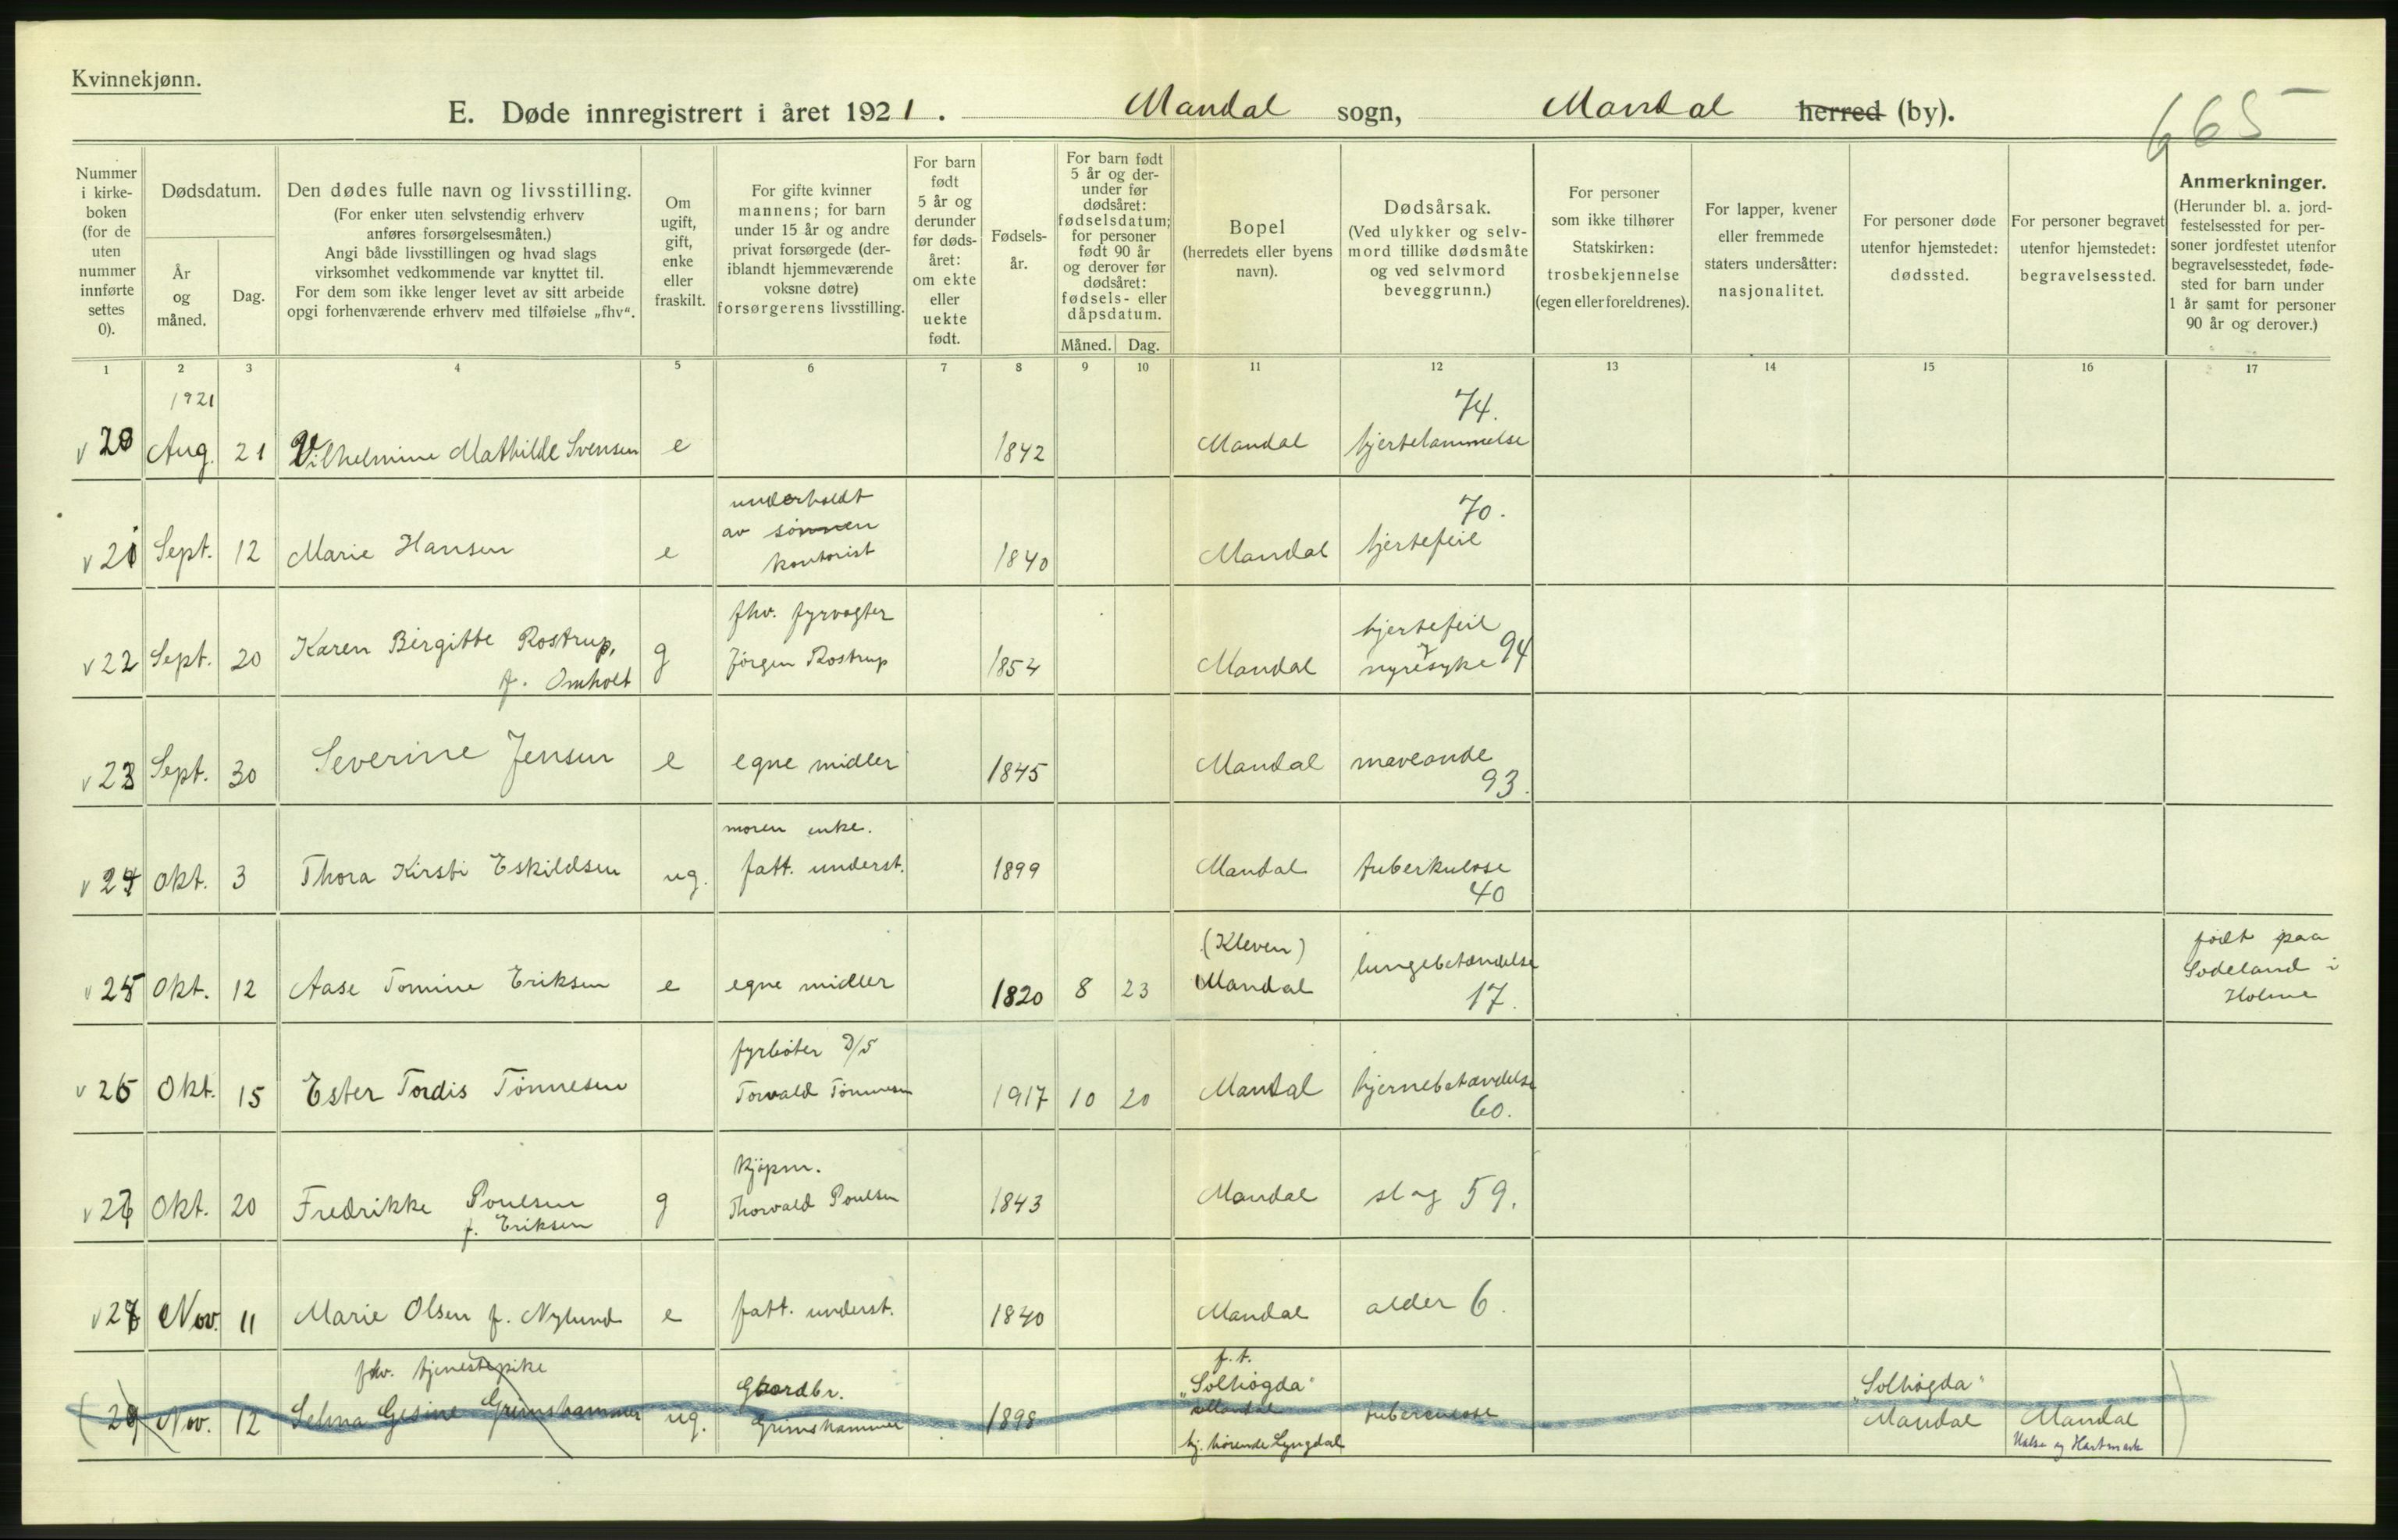 Kvinnekjønn.
665
E. Døde innregistrert i året 1921. Mandal sogn, Mandal herred (by).
Nummer i kirke-boken (for de uten nummer innførte settes 0).
Dødsdatum.
År og måned.
Dag.
Den dødes fulle navn og livsstilling.
(For enker uten selvstendig erhverv
anføres forsørgelsesmåten.)
Angi både livsstillingen og hvad slags
virksomhet vedkommende var knyttet til.
For dem som ikke lenger levet av sitt arbeide
opgi forhenværende erhverv med tilføielse „fhv“.
Om ugift, gift, enke eller fraskilt.
For gifte kvinner
mannens; for barn
under 15 år og andre
privat forsørgede (der-
iblandt hjemmeværende
voksne døtre)
forsørgerens livsstilling.
For barn født 5 år og derunder før døds-året: om ekte eller uekte født.
Fødsels-år.
For barn født
5 år og der-
under før
dødsåret:
fødselsdatum;
for personer
født 90 år
og derover før
dødsåret:
fødsels- eller
dåpsdatum.
Måned. Dag.
Bopel
(herredets eller byens
navn).
Dødsårsak.
(Ved ulykker og selv-
mord tillike dødsmåte
og ved selvmord
beveggrunn.)
For personer
som ikke tilhører
Statskirken:
trosbekjennelse
(egen eller foreldrenes).
For lapper, kvener
eller fremmede
staters undersåtter:
nasjonalitet.
For personer døde
utenfor hjemstedet:
dødssted.
For personer begravet
utenfor hjemstedet:
begravelsessted.
Anmerkninger.
(Herunder bl. a. jord-
festelsessted for per-
soner jordfestet utenfor
begravelsesstedet, føde-
sted for barn under
1 år samt for personer
90 år og derover.)
1 2 3 4 5 6 7 8 9 10 11 12 13 14 15 16 17
1921
v 20 Aug. 21 Vilhelmine Mathilde Svensen e 1842 Mandal hjertelammelse 74.
v 21 Sept. 12 Marie Hansen e underholdt av sønnen kontorist 1840 Mandal hjertefeil 70.
v 22 Sept. 20 Karen Birgitte Rostrup, f. Omholt g fhv. fyrvogter Jørgen Rostrup 1854 Mandal hjertefeil og nyresyke 94
v 23 Sept. 30 Severine Jensen e egne midler 1845 Mandal maveonde 93.
v 24 Okt. 3 Thora Kirsti Eskildsen ug. moren enke. fatt. underst. 1899 Mandal tuberkulose 40
v 25 Okt. 12 Aase Tomine Eriksen e egne midler 1820 8 23 (Kleven) Mandal lungebetændelse 17. født paa Sodeland i Holme
v 26 Okt. 15 Ester Tordis Tønnesen fyrbøter D/S Torvald Tønnesen 1917 10 20 Mandal hjernebetændelse 60.
v 27 Okt. 20 Fredrikke Poulsen f. Eriksen g kjøpm. Thorvald Poulsen 1843 Mandal slag 59.
v 28 Nov. 11 Marie Olsen f. Nylund e fatt. underst. 1840 Mandal alder 6.
(29 Nov. 12 fhv. tjenestepike Selma Gesine Grimshammer ug. Gaardbr. Grimshammer 1898 f. t. „Solhøgda“ Mandal hj. hørende Lyngdal tuberculose „Solhøgda“ Mandal Mandal Halse og Hartmark )